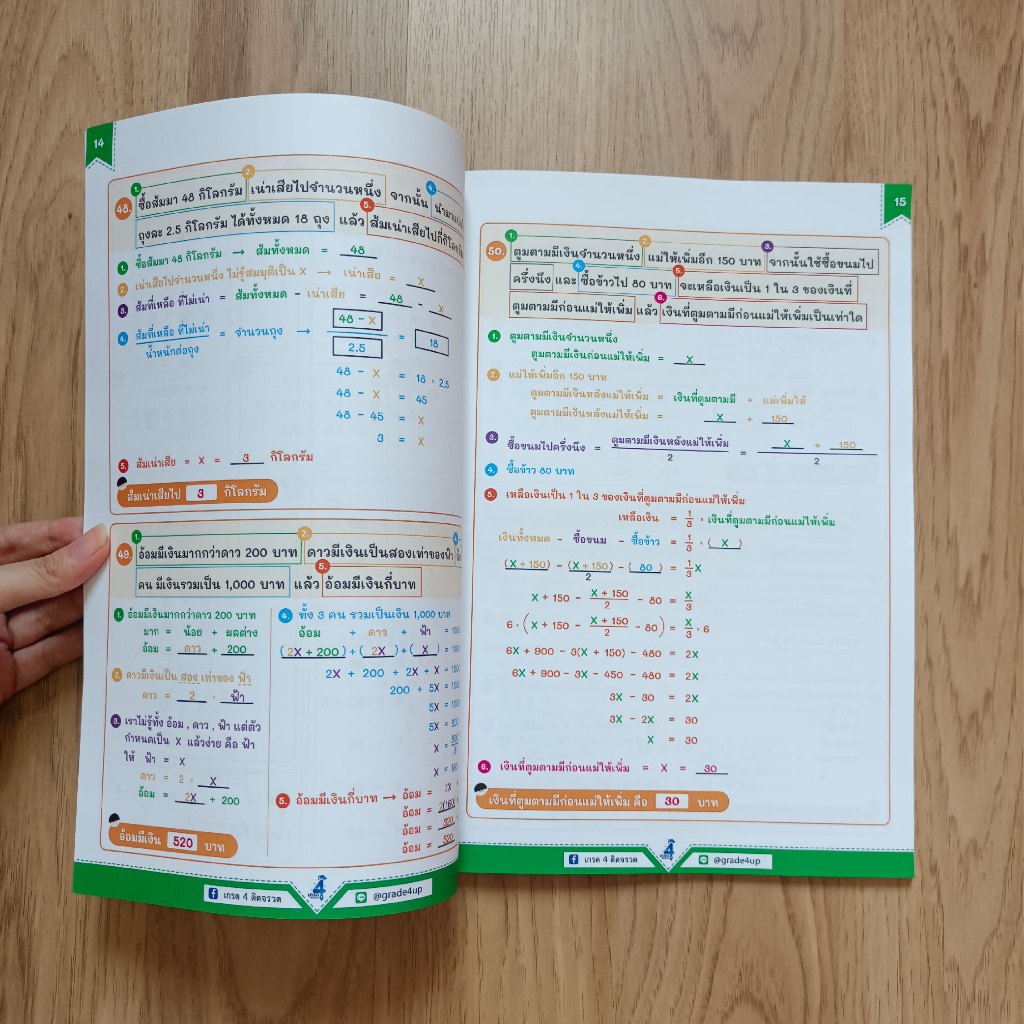 14
48. ซื้อส้มมา 48 กิโลกรัม เน่าเสียไปจำนวนหนึ่ง จากนั้น
ถุงละ 2.5 กิโลกรัม ได้ทั้งหมด 18 ถุง แล้ว ส้มเน่าเสียไปกี่กิโลกรัม
1. ซื้อส้มมา 48 กิโลกรัม → ส้มทั้งหมด = 48
2. เน่าเสียไปจำนวนหนึ่ง ไม่รู้สมมุติเป็น X → เน่าเสีย = X
3. ส้มที่เหลือ ที่ไม่เน่า = ส้มทั้งหมด - เน่าเสีย = 48 - X
4. ส้มที่เหลือ ที่ไม่เน่า / น้ำหนักต่อถุง = จำนวนถุง → 48 - X / 2.5 = 18
48 - X = 18 · 2.5
48 - X = 45
48 - 45 = X
3 = X
5. ส้มเน่าเสีย = X = 3 กิโลกรัม
ส้มเน่าเสียไป 3 กิโลกรัม
49. อ้อมมีเงินมากกว่าดาว 200 บาท ดาวมีเงินเป็นสองเท่าของฟ้า
คน มีเงินรวมเป็น 1,000 บาท แล้ว อ้อมมีเงินกี่บาท
1. อ้อมมีเงินมากกว่าดาว 200 บาท
มาก = น้อย + ผลต่าง
อ้อม = ดาว + 200
2. ดาวมีเงินเป็น สอง เท่าของ ฟ้า
ดาว = 2 · ฟ้า
3. เราไม่รู้ทั้ง อ้อม , ดาว , ฟ้า แต่ตัว
กำหนดเป็น X แล้วง่าย คือ ฟ้า
ให้ ฟ้า = X
ดาว = 2 · X
อ้อม = 2X + 200
อ้อมมีเงิน 520 บาท
4. ทั้ง 3 คน รวมเป็นเงิน 1,000 บาท
อ้อม + ดาว + ฟ้า = 1000
(2X + 200) + (2X) + (X) = 1000
2X + 200 + 2X + X = 1000
200 + 5X = 1000
5X = 1000
5X = 800
X =
X = 160
5. อ้อมมีเงินกี่บาท → อ้อม = 2X
อ้อม = 2(160)
อ้อม = 320
อ้อม = 520
เกรด 4 ติดจรวด
@grade4up
15
50. ตูมตามมีเงินจำนวนหนึ่ง แม่ให้เพิ่มอีก 150 บาท จากนั้นใช้ซื้อขนมไป
ครึ่งนึง และ ซื้อข้าวไป 80 บาท จะเหลือเงินเป็น 1 ใน 3 ของเงินที่
ตูมตามมีก่อนแม่ให้เพิ่ม แล้ว เงินที่ตูมตามมีก่อนแม่ให้เพิ่มเป็นเท่าใด
1. ตูมตามมีเงินจำนวนหนึ่ง
ตูมตามมีเงินก่อนแม่ให้เพิ่ม = X
2. แม่ให้เพิ่มอีก 150 บาท
ตูมตามมีเงินหลังแม่ให้เพิ่ม = เงินที่ตูมตามมี + แม่เพิ่มให้
ตูมตามมีเงินหลังแม่ให้เพิ่ม = X + 150
3. ซื้อขนมไปครึ่งนึง = ตูมตามมีเงินหลังแม่ให้เพิ่ม / 2 = X + 150 / 2
4. ซื้อข้าว 80 บาท
5. เหลือเงินเป็น 1 ใน 3 ของเงินที่ตูมตามมีก่อนแม่ให้เพิ่ม
เหลือเงิน = 1/3 · เงินที่ตูมตามมีก่อนแม่ให้เพิ่ม
เงินทั้งหมด - ซื้อขนม - ซื้อข้าว = 1/3 · (X)
(X + 150) - (X + 150)/2 - (80) = 1/3 X
X + 150 - (X + 150)/2 - 80 = X/3
6 · (X + 150 - (X + 150)/2 - 80) = X/3 · 6
6X + 900 - 3(X + 150) - 480 = 2X
6X + 900 - 3X - 450 - 480 = 2X
3X - 30 = 2X
3X - 2X = 30
X = 30
6. เงินที่ตูมตามมีก่อนแม่ให้เพิ่ม = X = 30
เงินที่ตูมตามมีก่อนแม่ให้เพิ่ม คือ 30 บาท
เกรด 4 ติดจรวด
4
@grade4up